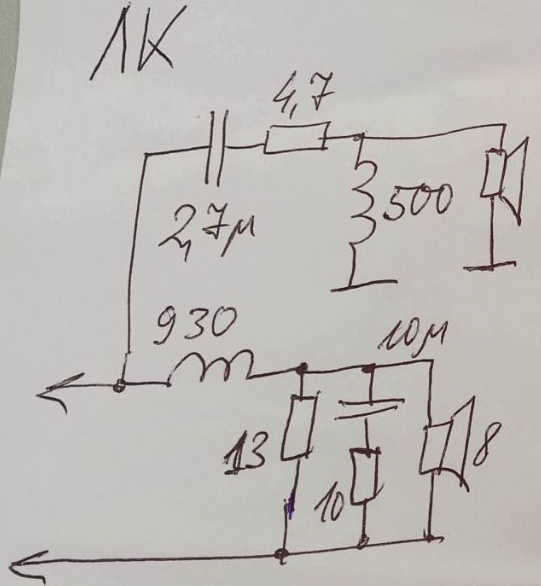 ЛК
4,7
2,7μ
500
930
10μ
13
10
8